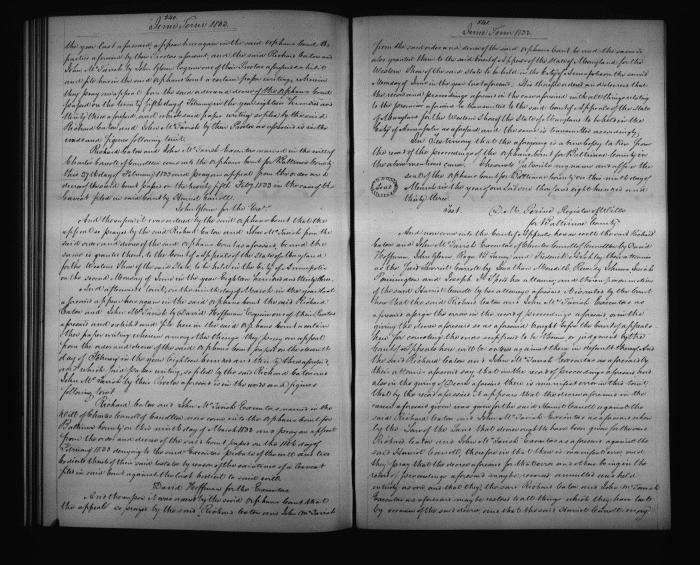 240
June Term 1833.
the year last aforesaid, appear here again in the said Orphans Court, the
parties aforesaid by their Proctors aforesaid, and the said Richard Caton and
John McTavish by John Glenn Esquire one of their Proctors aforesaid exhibit
and file here in the said Orphans Court a certain paper writing, wherein
they pray an appeal from the said order and decree of the Orphans Court
passed on the twenty fifth day of February in the year eighteen hundred and
thirty three aforesaid, and which said paper writing so filed by the said
Richard Caton and John McTavish by their Proctor as aforesaid is in the
words and figures following to wit.
Richard Caton and John McTavish Executors named in the will of
Charles Carroll of Carrollton come into the Orphans Court for Baltimore County
this 27th day of February 1833 and pray an appeal from the order and
decree of the said Court passed on the twenty fifth Feby 1833 in the case of the
Caveat filed in said Court by Harriet Carroll.
John Glenn for the Exrs
And thereupon it was ordered by the said Orphans Court that the
appeal so prayed by the said Richard Caton and John McTavish from the
said order and decree of the said Orphans Court as aforesaid, be and the
same is granted them, to the Court of Appeals of the State of Maryland
for the Western Shore of the said State, to be held in the City of Annapolis
on the second Monday of June in the year Eighteen hundred and thirty three.
And afterwards to wit, on the ninth day of March in the year last
aforesaid appear here again in the said Orphans Court the said Richard
Caton and John McTavish by David Hoffman Esquire one of their Proctors
aforesaid and exhibit and file here in the said Orphans Court a certain
other paper writing wherein among other things they pray an appeal
from the order and decree of the said Orphans Court passed on the
day of February in the year Eighteen hundred and thirty three aforesaid,
and which said paper writing, so filed by the said Richard Caton and
John McTavish by their Proctor as aforesaid is in the words and figures
following, to wit.
Richard Caton and John McTavish Executors, named in the
Will of Charles Carroll of Carrollton now come into the Orphans Court for
Baltimore County on this ninth day of March 1833 and pray an appeal
from the order and decree of the said Court passed on the day of
February 1833 denying to the said Executors probate of the will and
codicils thereof of their said testator by reason of the of a Caveat
filed in said Court against the last Codicil to said will
David Hoffman for the Executors
And thereupon it was ordered by the said Orphans Court that
the appeal so prayed by the said Richard Caton and John McTavish
240
June Term 1833.
from the said order and decree of the said Orphans Court be and the same is
also granted them to the said Court of Appeals of the State of Maryland for the
Western Shore of the said State to be held in the City of Annapolis on the second
Monday of June in the year last aforesaid. It is thereupon ordered and decreed that
the record and proceedings aforesaid in the case aforesaid with all things relating
to the premises aforesaid be transmitted to the said Court of Appeals of the State
of Maryland for the Western Shore of the State of Maryland to be held in the
City of Annapolis as aforesaid and the same is transmitted accordingly.
In Testimony that the aforegoing is a true Copy taken from
the record of the proceedings of the Orphans Court for Baltimore County in
the above mentioned cause, I hereunto subscribe my name and affix the
seal of the Orphans Court for Baltimore County on this ninth day of
March in the year of our Lord one thousand eight hundred and
thirty three
Seal
Test. D. M. Perine Register of Wills
for Baltimore County
And now come into the Court of Appeals here as well the said Richard
Caton and John McTavish Executors of Charles Carroll of Carrollton by David
Hoffman, John Glenn, Roger B Taney, and their attornies
as the said Harriet Carroll by Jonathan Meredith, Reverdy Johnson, Josiah
Pennington and Joseph her attornies, and thereon
of the said Harriet Carroll by her attornies aforesaid by the Court
here that the said Richard Caton and John McTavish Executors as
aforesaid assign the error in the record of proceedings aforesaid or in the
giving the decree aforesaid so as aforesaid brought before the Court of Appeals
here for correcting the error supposed to be therein, or judgment by the
Court of Appeals here will be entered against them in default thereof. And
the said Richard Caton and John McTavish Executors as aforesaid by
their attornies aforesaid say that in the record of proceedings aforesaid and
also in the giving of Decree aforesaid there is manifest error in this to wit
that by the record aforesaid it appears that the decree aforesaid in the
record aforesaid given was given for the said Harriet Carroll against the
said Richard Caton and John McTavish Executors as aforesaid where
by the Law of the Land that decree ought to have been given for the said
Richard Caton and John McTavish Executors as aforesaid against the
said Harriet Carroll, therefore in that there is manifest error, and
they pray that the decree aforesaid for that error and others being in the
record & proceedings aforesaid may be reversed annulled and held
entirely as void, and that they the said Richard Caton and John McTavish
Executors as aforesaid may be restored to all things which they have lost
by occasion of the said decree, and that the said Harriet Carroll may